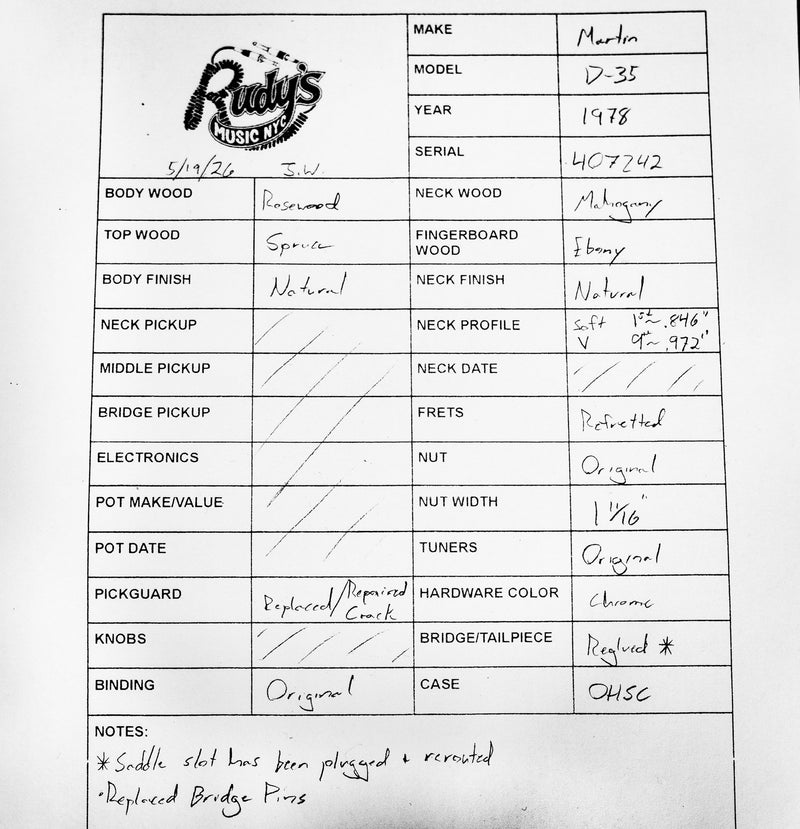 Rudy's
MUSIC NYC
5/19/26 J.W.
MAKE Martin
MODEL D-35
YEAR 1978
SERIAL 407242
BODY WOOD Rosewood NECK WOOD Mahogany
TOP WOOD Spruce FINGERBOARD
WOOD Ebony
BODY FINISH Natural NECK FINISH Natural
NECK PICKUP NECK PROFILE Soft 1st ~ .846"
V 9th ~ .972"
MIDDLE PICKUP NECK DATE
BRIDGE PICKUP FRETS Refretted
ELECTRONICS NUT Original
POT MAKE/VALUE NUT WIDTH 1 11/16"
POT DATE TUNERS Original
PICKGUARD Replaced/Repaired
Crack HARDWARE COLOR Chrome
KNOBS BRIDGE/TAILPIECE Reglued *
BINDING Original CASE OHSC
NOTES:
* Saddle slot has been plugged + rerouted
• Replaced Bridge Pins